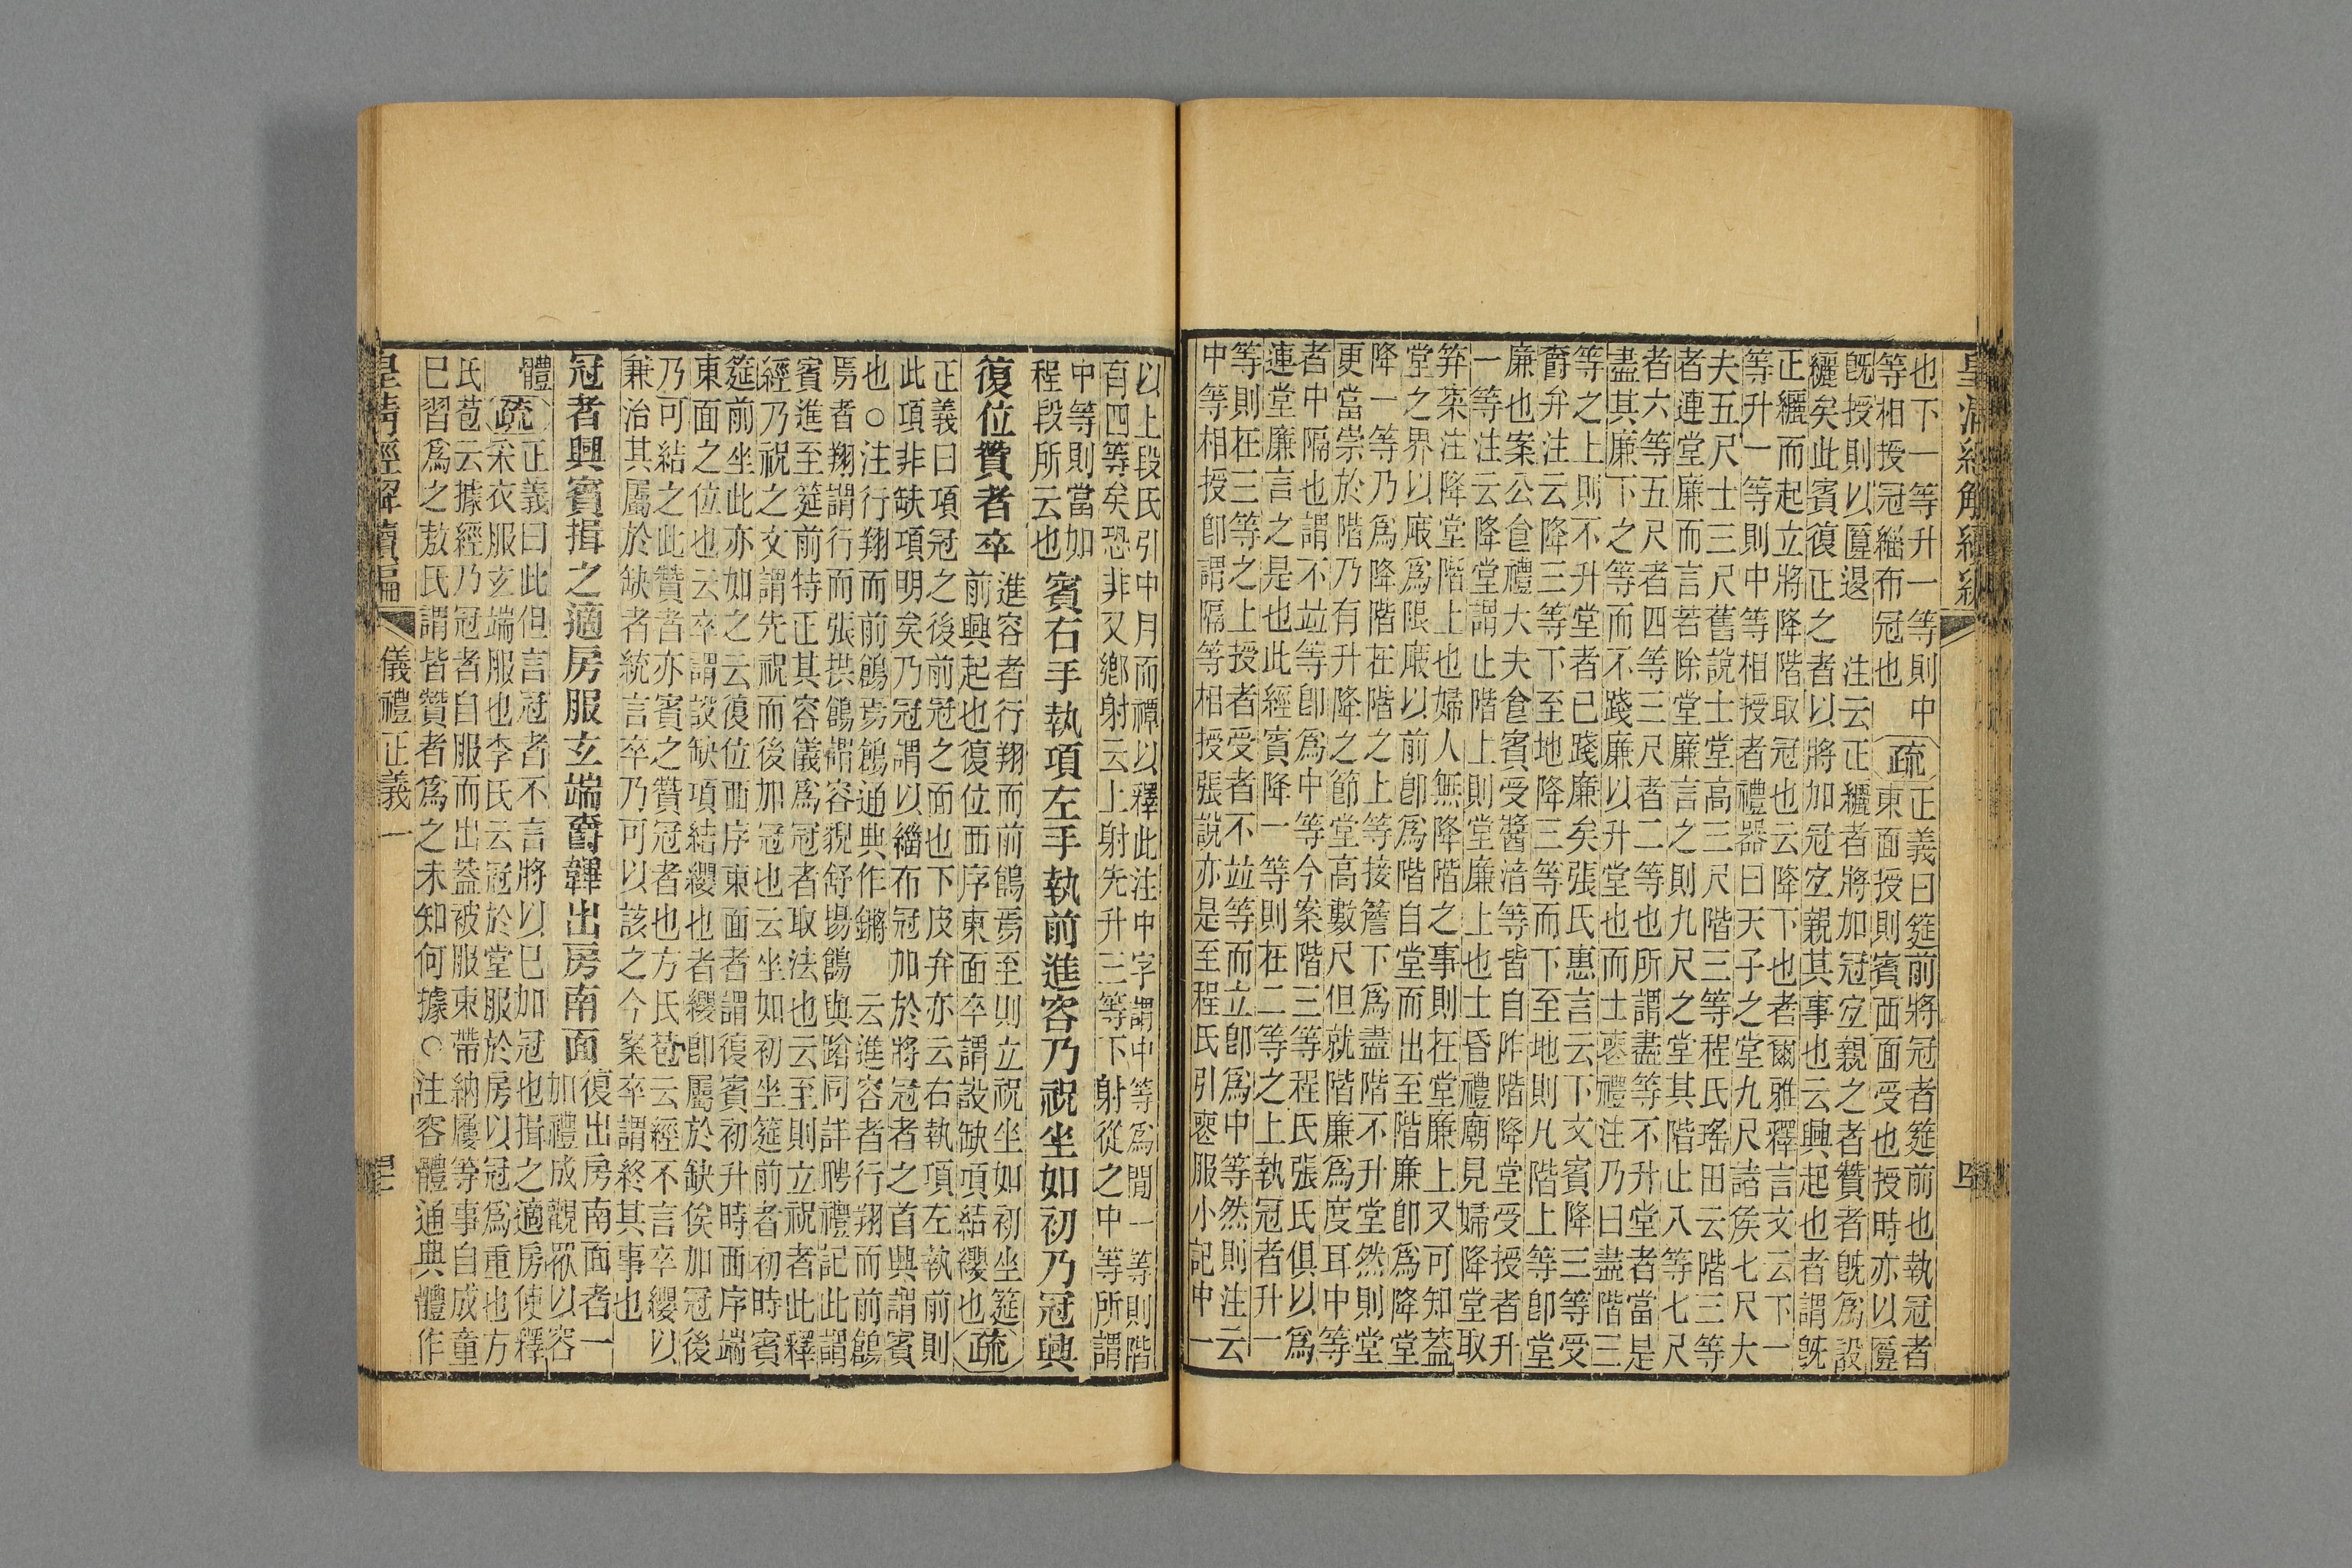 皇清經解續編
也下一等升一等則中
等相授冠緇布冠也
疏
正義曰筵前將冠者筵前也執冠者
東面授則賓西面受也授時亦以匴
既授則以匴退　注云正纚者將加冠宐親之者贊者既爲設
纚矣此賓復正之者以將加冠宐親其事也云興起也者謂既
正纚而起立將降階取冠也云降下也者爾雅釋言文云下一
等升一等則中等相授者禮器曰天子之堂九尺諸侯七尺大
夫五尺士三尺舊說士堂高三尺階三等程氏瑤田云階三等
者連堂廉而言若除堂廉言之則九尺之堂其階止八等七尺
者六等五尺者四等三尺者二等也所謂盡等不升堂者當是
盡其廉下之等而不踐廉以升堂也而士喪禮注乃曰盡階三
等之上則不升堂者已踐廉矣張氏惠言云下文賓降三等受
爵弁注云降三等下至地降三等而下至地則凡階上等卽堂
廉也案公食禮大夫食賓受醬湆等皆自阼階降堂受授者升
一等注云降堂謂止階上則堂廉上也士昏禮廟見婦降堂取
笲菜注降堂階上也婦人無降階之事則在堂廉上又可知蓋
堂之界以廠爲限廠以前卽爲階自堂而出至階廉卽爲降堂
降一等乃爲降階在階之上等接簷下爲盡階不升堂然則堂
更當崇於階乃有升降之節堂高數尺但就階廉爲度耳中等
者中隔也謂不竝等卽爲中等今案階三等程氏張氏俱以爲
連堂廉言之是也此經賓降一等則在二等之上執冠者升一
等則在三等之上授者受者不竝等而立卽爲中等然則注云
中等相授卽謂隔等相授張說亦是至程氏引喪服小記中一
以上段氏引中月而禫以釋此注中字謂中等爲閒一等則階
有四等矣恐非又鄉射云上射先升三等下射從之中等所謂
中等則當如
程段所云也
賓右手執項左手執前進容乃祝坐如初乃冠興
復位贊者卒
進容者行翔而前鶬焉至則立祝坐如初坐筵
前興起也復位西序東面卒謂設缺項結纓也
疏
正義曰項冠之後前冠之面也下皮弁亦云右執項左執前則
此項非缺項明矣乃冠謂以緇布冠加於將冠者之首興謂賓
也○注行翔而前鶬焉鶬通典作鏘　云進容者行翔而前鶬
焉者翔謂行而張拱鶬謂容貌舒揚鶬與蹌同詳聘禮記此謂
賓進至筵前特正其容儀爲冠者取法也云至則立祝者此釋
經乃祝之文謂先祝而後加冠也云坐如初坐筵前者初時賓
筵前坐此亦如之云復位西序東面者謂復賓初升時西序端
東面之位也云卒謂設缺項結纓也者纓卽屬於缺俟加冠後
乃可結之此贊者亦賓之贊冠者也方氏苞云經不言卒纓以
兼治其屬於缺者統言卒乃可以該之今案卒謂終其事也
冠者興賓揖之適房服玄端爵韠出房南面
復出房南面者一
加禮成觀眾以容
體
疏
正義曰此但言冠者不言將以巳加冠也揖之適房使釋
采衣服玄端服也李氏云冠於堂服於房以冠爲重也方
氏苞云據經乃冠者自服而出蓋被服束帶納屨等事自成童
巳習爲之敖氏謂皆贊者爲之未知何據○注容體通典體作
皇清經解續編
儀禮正義一